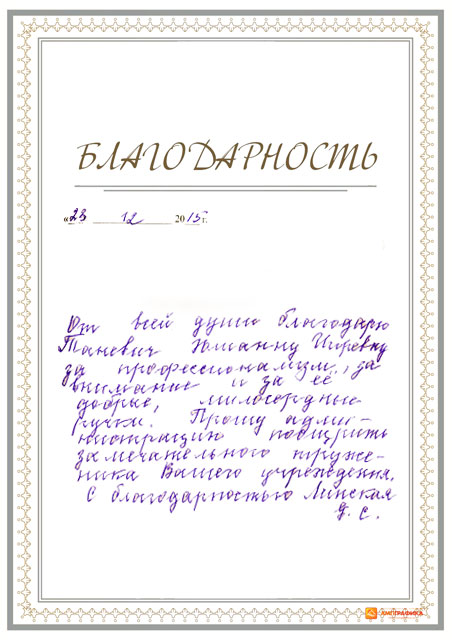 БЛАГОДАРНОСТЬ
«23 12 2015 г.
От всей души благодарю
Таневич Юлианну Игоревну
за профессионализм, за
внимание и за её
добрые, милосердные
ручки. Прошу адми-
нистрацию поощрить
замечательного труже-
ника Вашего учреждения.
С благодарностью Линская